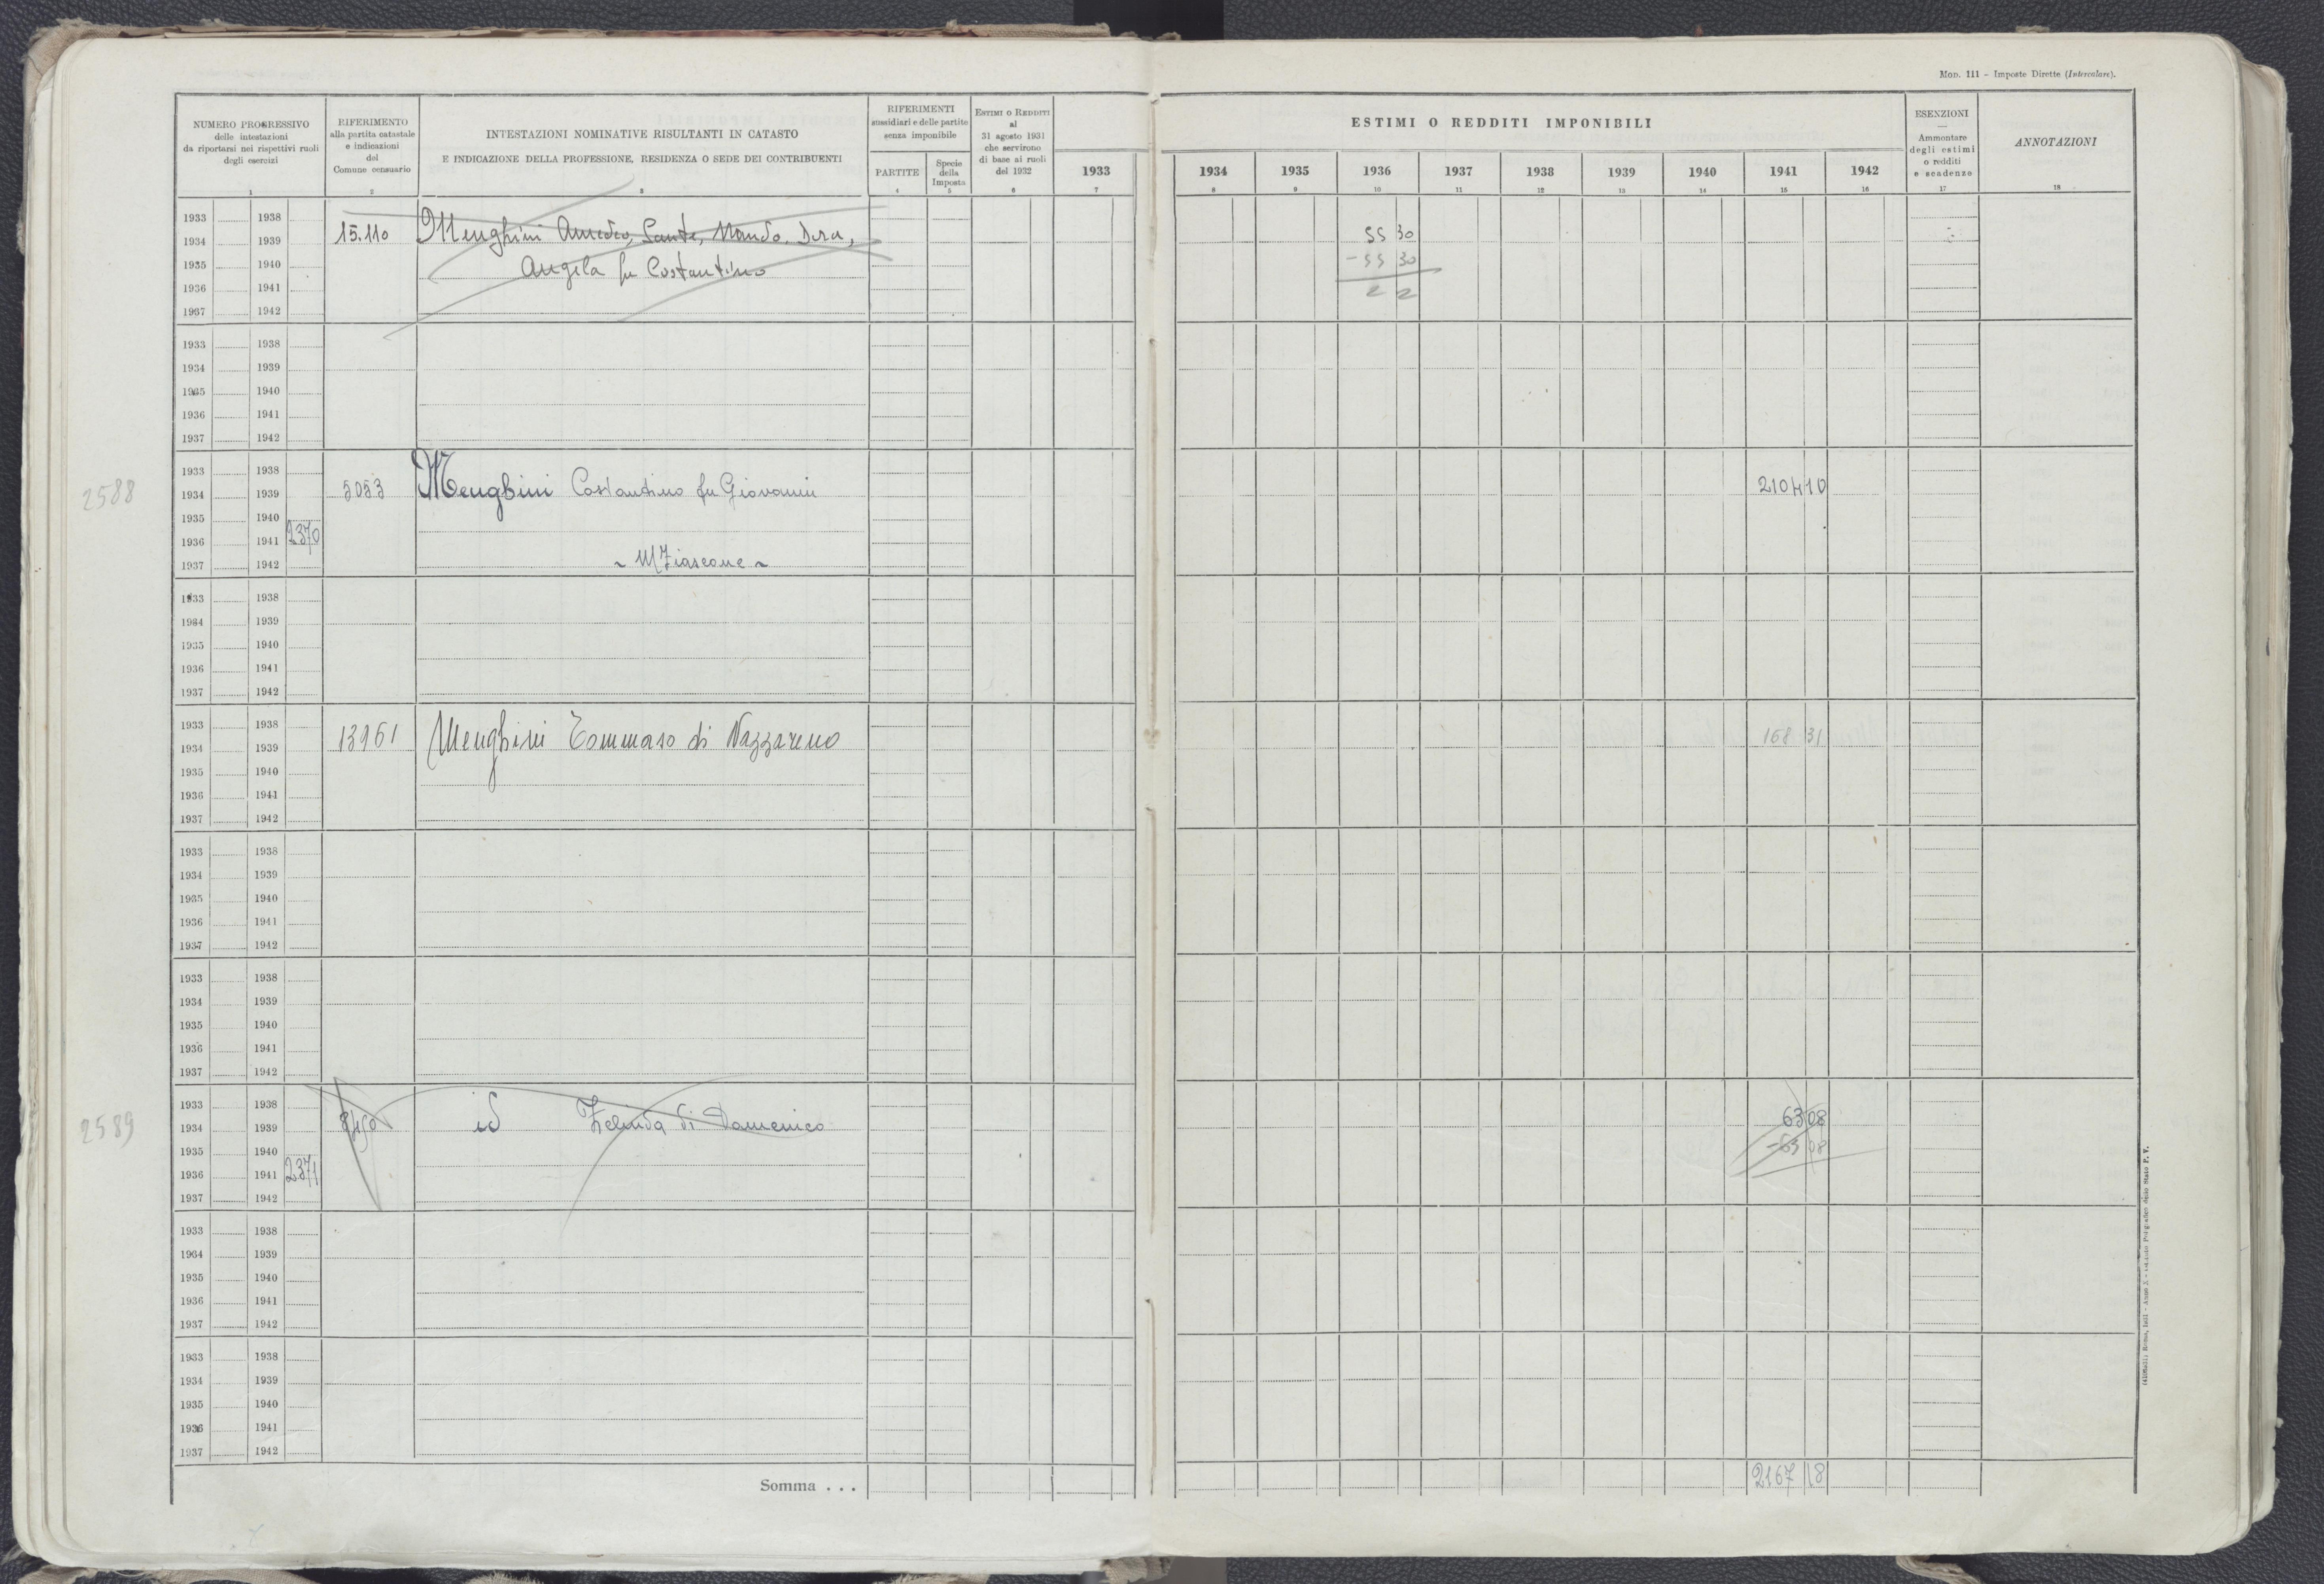 Mod. 111 - Imposte Dirette (Intercalare).
NUMERO PROGRESSIVO
delle intestazioni
da riportarsi nei rispettivi ruoli
degli esercizi
1
RIFERIMENTO
alla partita catastale
e indicazioni
del
Comune censuario
2
INTESTAZIONI NOMINATIVE RISULTANTI IN CATASTO
E INDICAZIONE DELLA PROFESSIONE, RESIDENZA O SEDE DEI CONTRIBUENTI
3
RIFERIMENTI
sussidiari e delle partite
senza imponibile
PARTITE
4
Specie
della
Imposta
5
Estimi o Redditi
al
31 agosto 1931
che servirono
di base ai ruoli
del 1932
6
1933
7
ESTIMI O REDDITI IMPONIBILI
1934 1935 1936 1937 1938 1939 1940 1941 1942
8 9 10 11 12 13 14 15 16
ESENZIONI
Ammontare
degli estimi
o redditi
e scadenze
17
ANNOTAZIONI
18
1933 1938
1934 1939 15.110 Menghini Amedeo, Sante, Nando, Dora, 55 30
1935 1940 Angela fu Costantino - 55 30
1936 1941
1937 1942
1933 1938
1934 1939
1935 1940
1936 1941
1937 1942
1933 1938
2588 1934 1939 5053 Menghini Costantino fu Giovanni 2104 10
1935 1940
1936 1941 2370
1937 1942 ~ M Fiascone ~
1933 1938
1934 1939
1935 1940
1936 1941
1937 1942
1933 1938
1934 1939 13961 Menghini Tommaso di Nazzareno 168 31
1935 1940
1936 1941
1937 1942
1933 1938
1934 1939
1935 1940
1936 1941
1937 1942
1933 1938
1934 1939
1935 1940
1936 1941
1937 1942
1933 1938
2589 1934 1939 id Zelinda di Domenico 63 08
1935 1940 - 63 08
1936 1941 2371
1937 1942
1933 1938
1934 1939
1935 1940
1936 1941
1937 1942
1933 1938
1934 1939
1935 1940
1936 1941
1937 1942
Somma . . . 2167 18